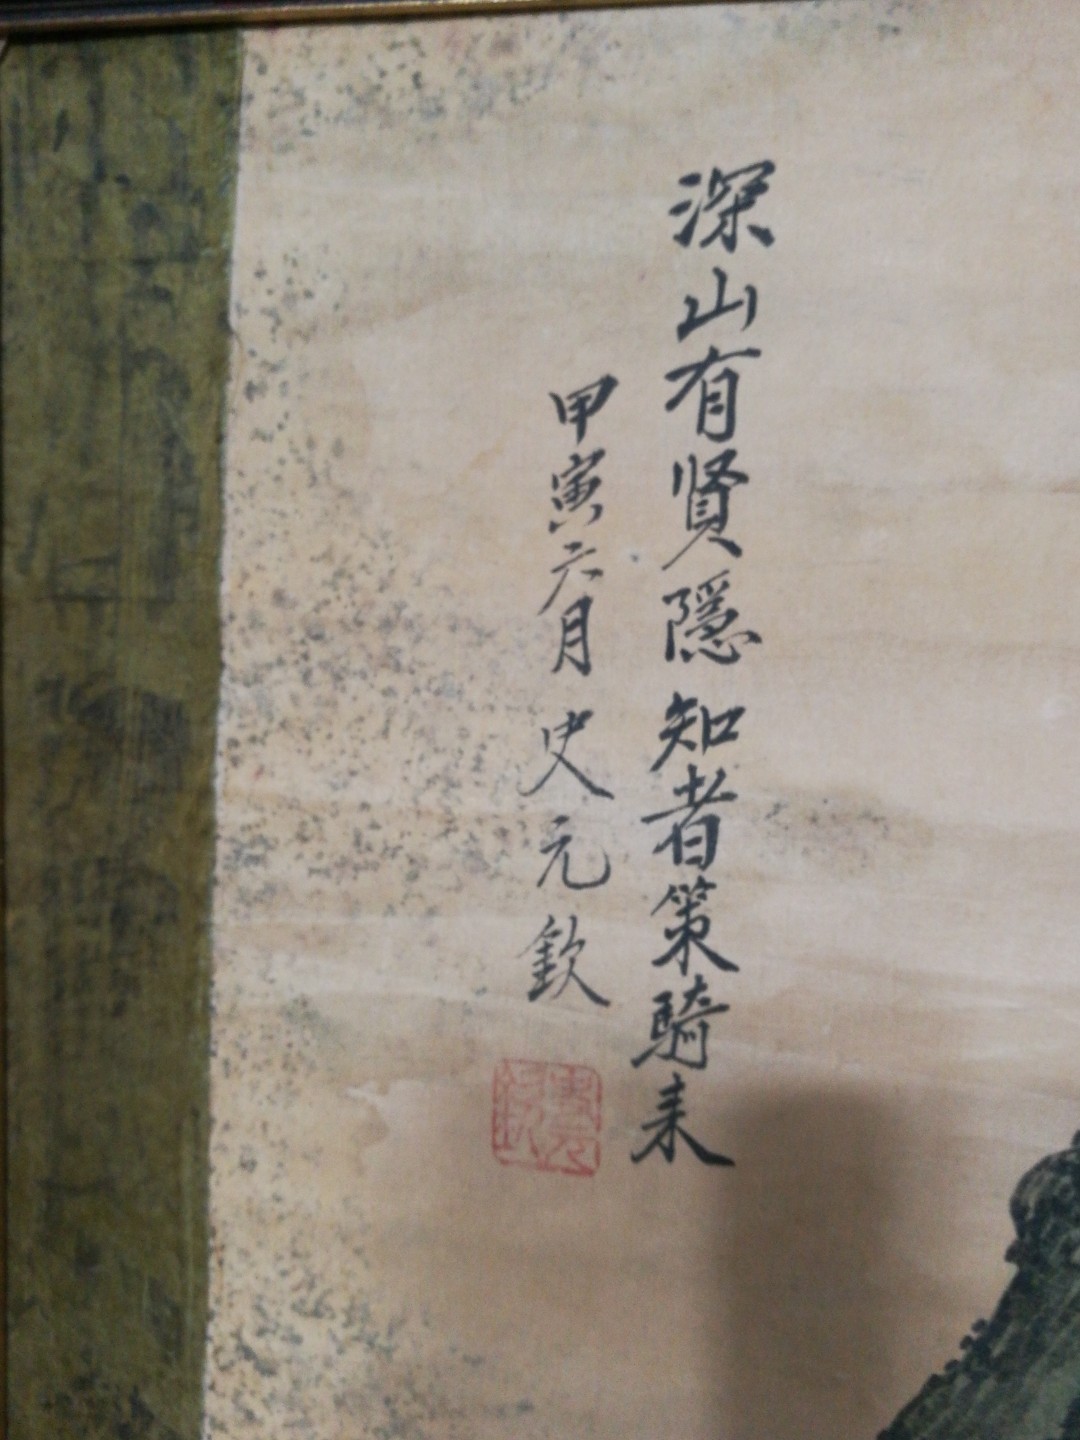 深山有賢隱知者策騎来
甲寅六月 史元欽
史元欽